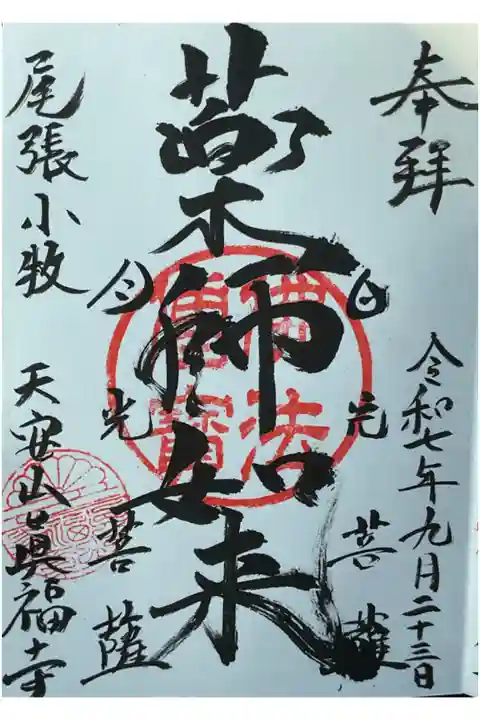 奉拝
令和七年九月二十三日
日光菩薩
藥師如来
月光菩薩
尾張小牧
天安山眞福寺
佛法僧寶